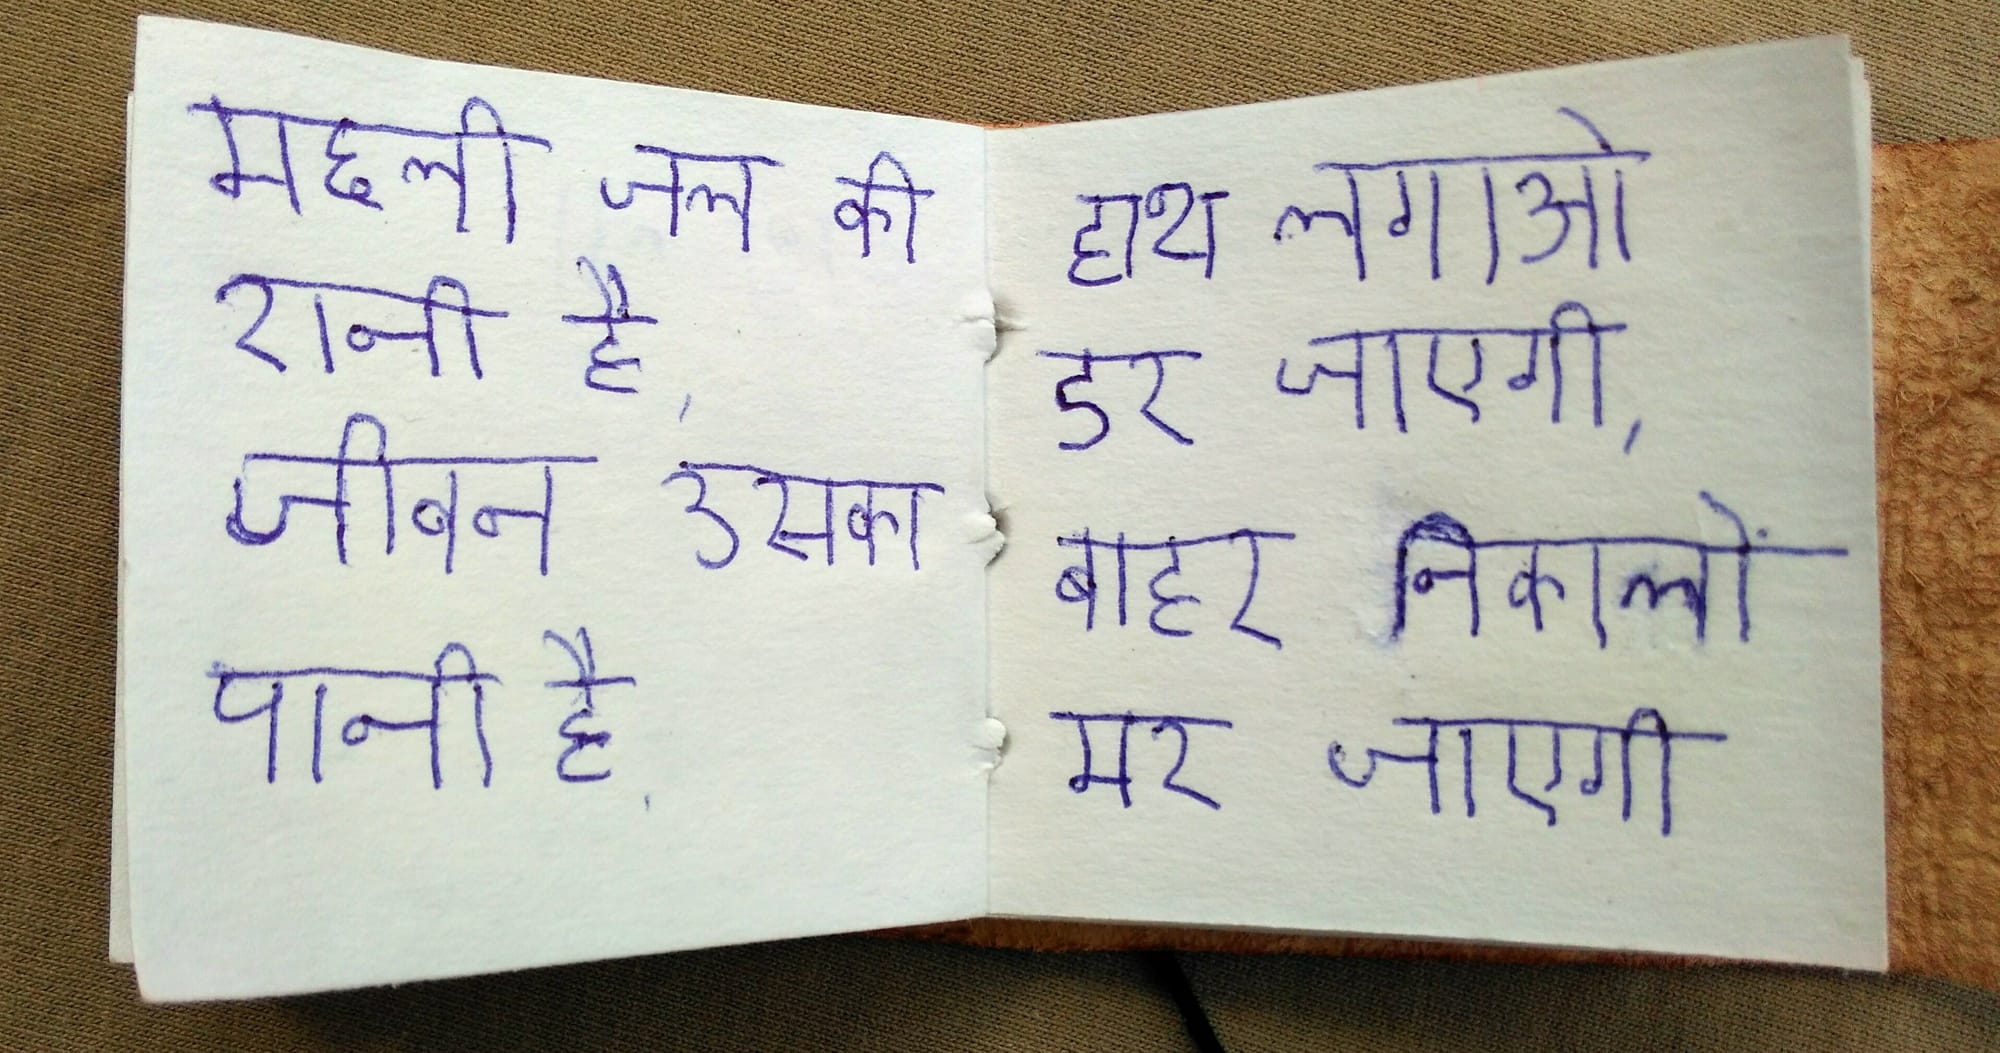 मछली जल की
रानी है,
जीवन उसका
पानी है,
हाथ लगाओ
डर जाएगी,
बाहर निकालों
मर जाएगी